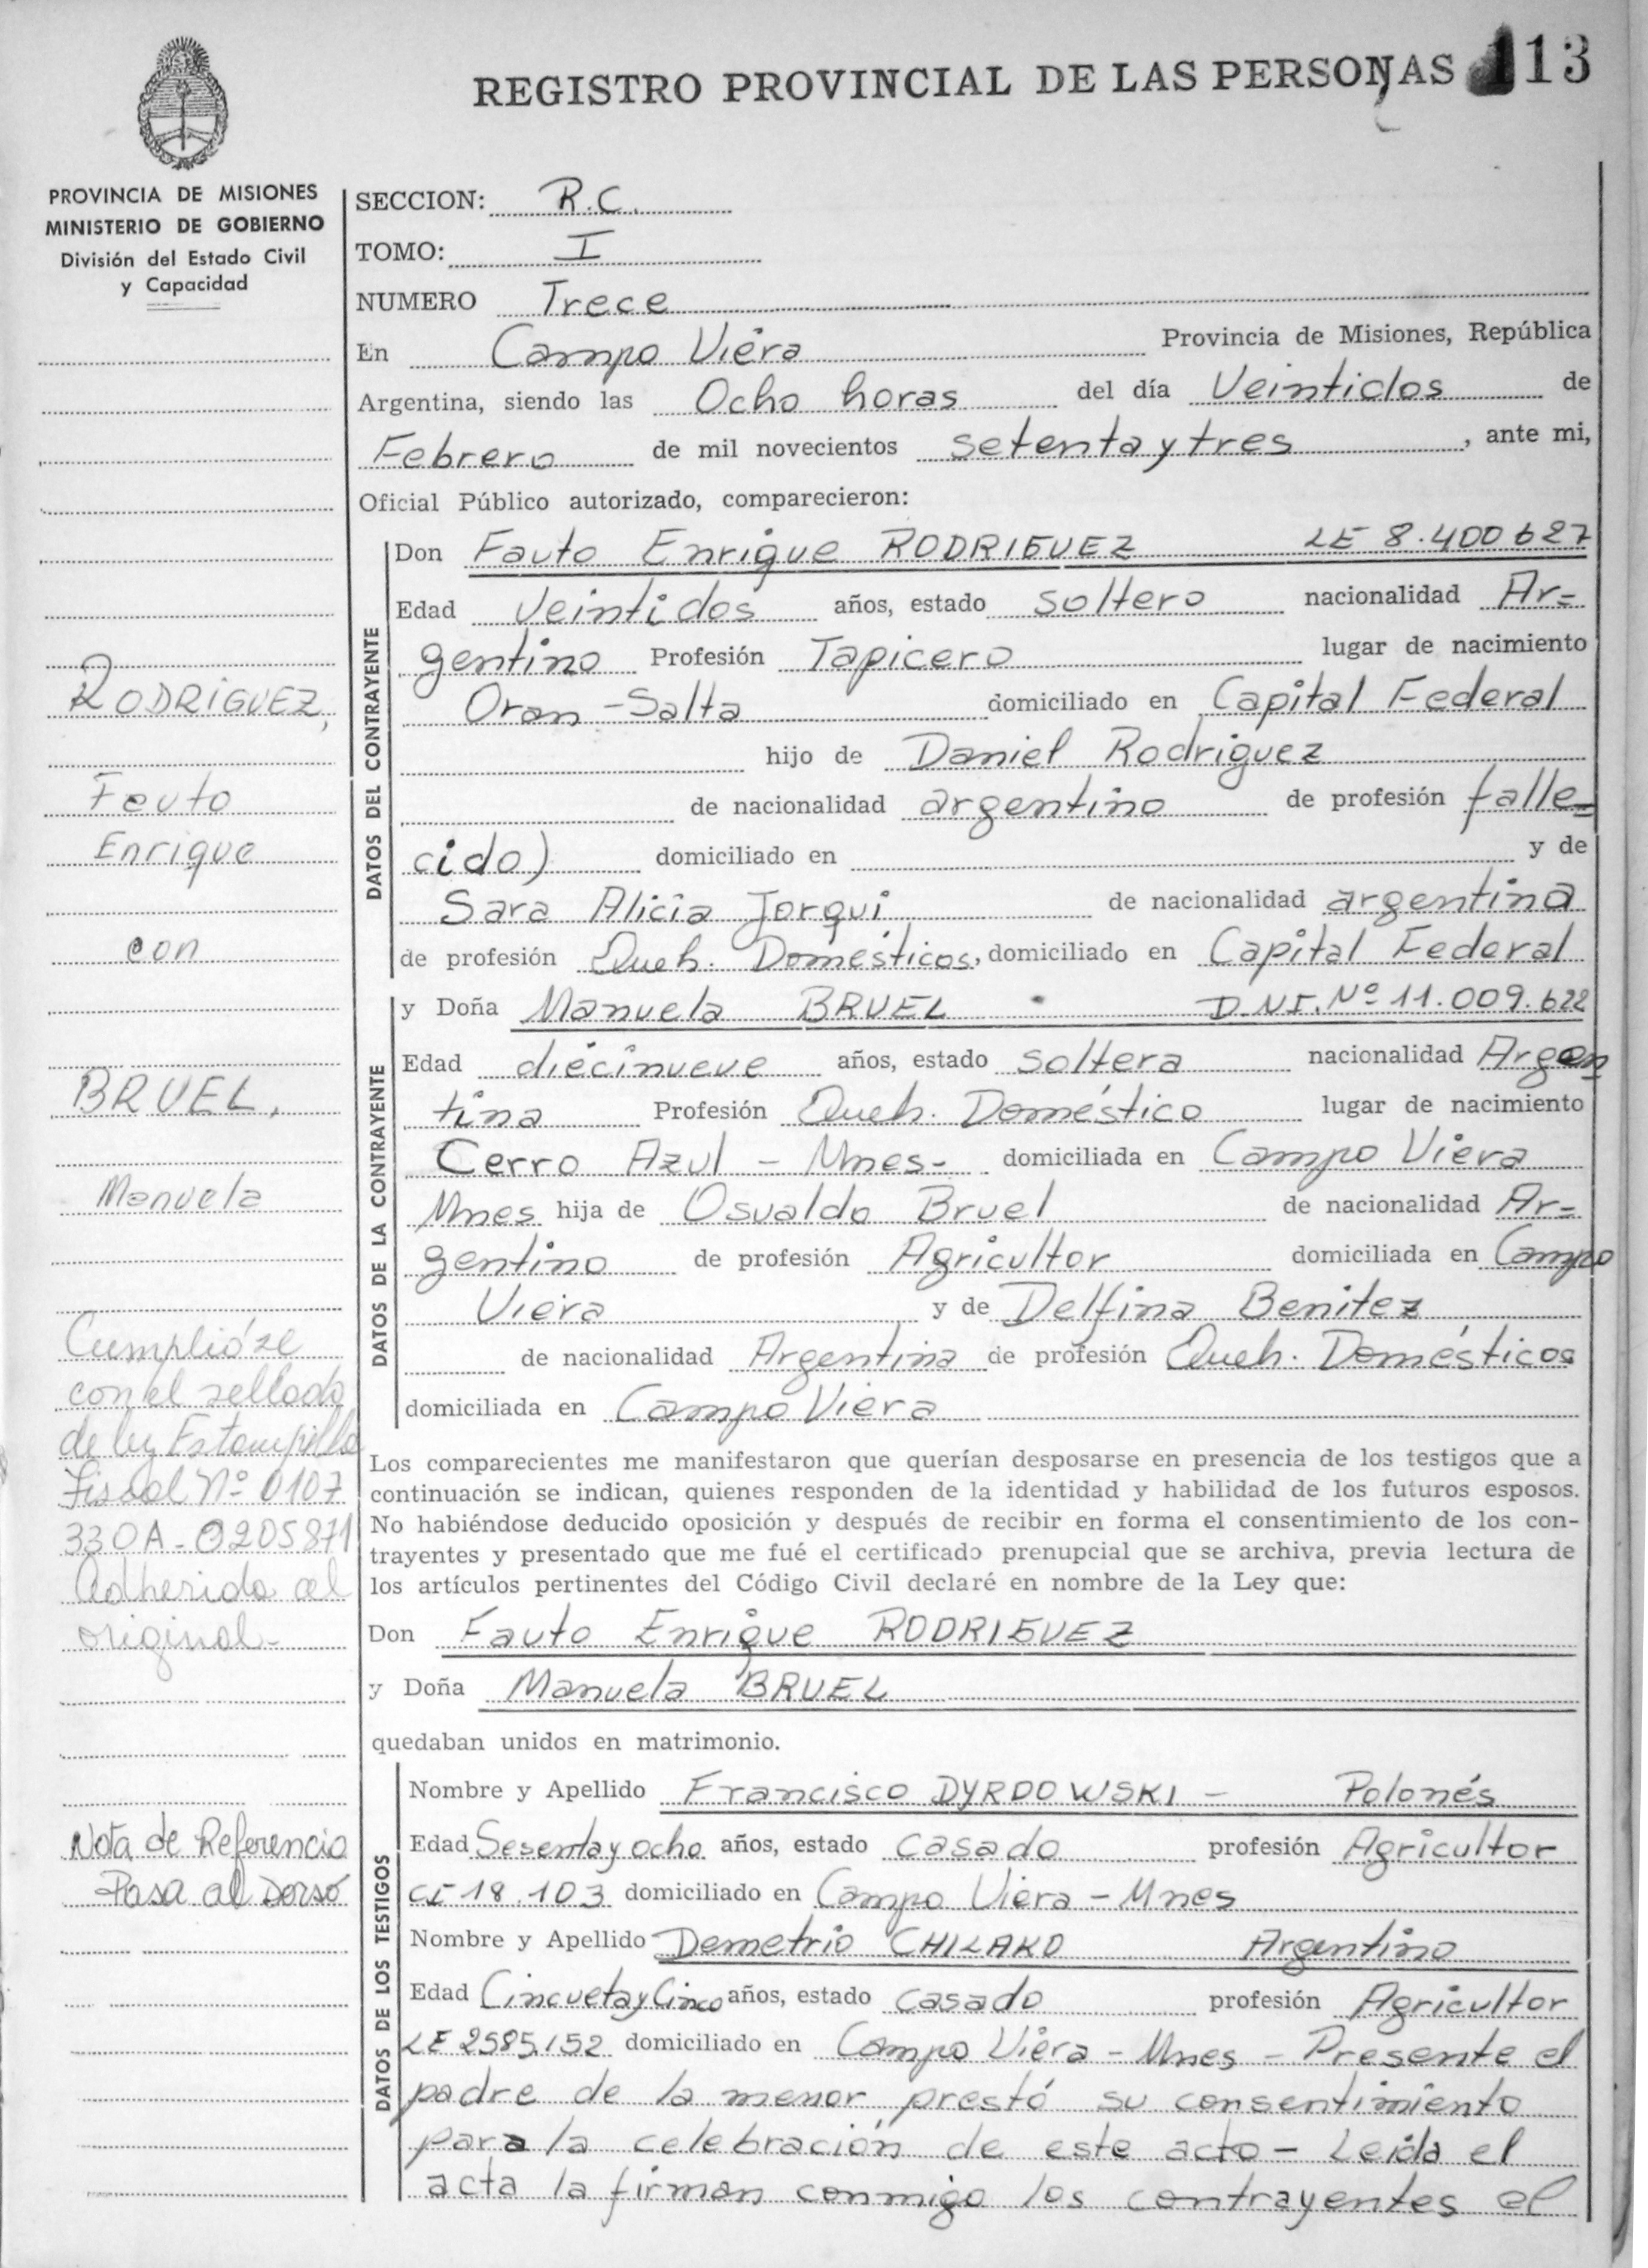 REGISTRO PROVINCIAL DE LAS PERSONAS 113
PROVINCIA DE MISIONES
MINISTERIO DE GOBIERNO
División del Estado Civil
y Capacidad
RODRIGUEZ,
Fauto
Enrique
con
BRUEL,
Manuela
Cumplióse
con el sellado
de ley Estampilla
Fiscal Nº 0107
330A - 0205871
Adherida al
original -
Nota de Referencia
Pasa al Dorso
SECCION: R.C.
TOMO: I
NUMERO Trece
En Campo Viera Provincia de Misiones, República
Argentina, siendo las Ocho horas del día Veintidos de
Febrero de mil novecientos setenta y tres, ante mi,
Oficial Público autorizado, comparecieron:
DATOS DEL CONTRAYENTE
Don Fauto Enrique RODRIGUEZ LE 8.400627
Edad Veintidos años, estado soltero nacionalidad Ar=
gentino Profesión Tapicero lugar de nacimiento
Oran - Salta domiciliado en Capital Federal
hijo de Daniel Rodriguez
de nacionalidad argentino de profesión falle=
cido) domiciliado en y de
Sara Alicia Jorqui de nacionalidad argentina
de profesión Queh. Domésticos, domiciliado en Capital Federal
DATOS DE LA CONTRAYENTE
y Doña Manuela BRUEL D.NI. Nº 11.009.622
Edad diecinueve años, estado soltera nacionalidad Argen
tina Profesión Queh. Doméstico lugar de nacimiento
Cerro Azul - Mnes- domiciliada en Campo Viera
Mnes hija de Osvaldo Bruel de nacionalidad Ar=
gentino de profesión Agricultor domiciliada en Campo
Viera y de Delfina Benitez
de nacionalidad Argentina de profesión Queh. Domésticos
domiciliada en Campo Viera
Los comparecientes me manifestaron que querían desposarse en presencia de los testigos que a
continuación se indican, quienes responden de la identidad y habilidad de los futuros esposos.
No habiéndose deducido oposición y después de recibir en forma el consentimiento de los con-
trayentes y presentado que me fué el certificado prenupcial que se archiva, previa lectura de
los artículos pertinentes del Código Civil declaré en nombre de la Ley que:
Don Fauto Enrique RODRIGUEZ
y Doña Manuela BRUEL
quedaban unidos en matrimonio.
DATOS DE LOS TESTIGOS
Nombre y Apellido Francisco DYRDOWSKI - Polonés
Edad Sesenta y ocho años, estado casado profesión Agricultor
CI 18.103 domiciliado en Campo Viera - Mnes
Nombre y Apellido Demetrio CHILAKO Argentino
Edad Cincueta y Cinco años, estado casado profesión Agricultor
LE 2585152 domiciliado en Campo Viera - Mnes - Presente el
padre de la menor prestó su consentimiento
para la celebración de este acto - Leida el
acta la firman conmigo los contrayentes el